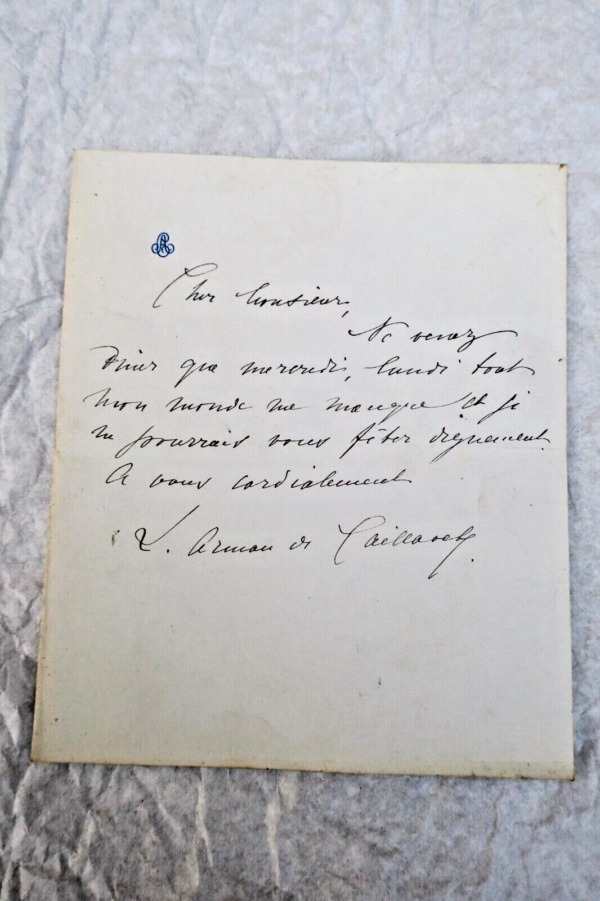 Cher Monsieur,
Ne venez
Diner que mercredi, lundi tout
mon monde me manque et je
ne pourrais vous fêter dignement
A vous cordialement
L. Arman de Caillavet.